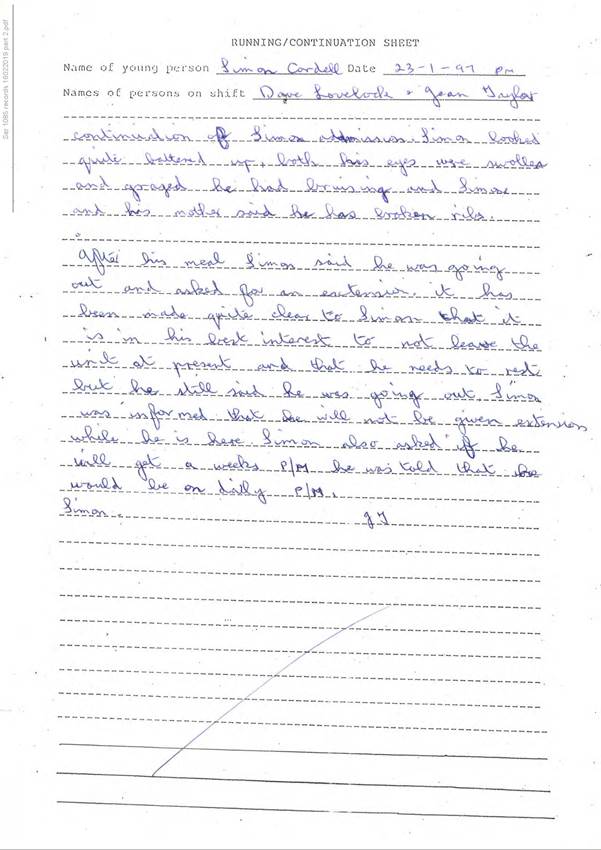 Sar 1085 records 16022019 part 2.pdf
RUNNING/CONTINUATION SHEET
Name of young person Simon Cordell Date 23-1-97 pm
Names of persons on shift Dave Lovelock & Jean Taylor
continuation of Simon admission. Simon looked
quite battered up, both his eyes were swollen
and grazed he had bruising and Simon
and his mother said he has broken ribs.
After his meal Simon said he was going
out and asked for an extension. it has
been made quite clear to Simon that it
is in his best interest to not leave the
unit at present and that he needs to rest
but he still said he was going out. Simon
was informed that he will not be given extension
while he is here Simon also asked if he
will get a weeks P/M he was told that he
would be on daily P/M.
Simon. JT